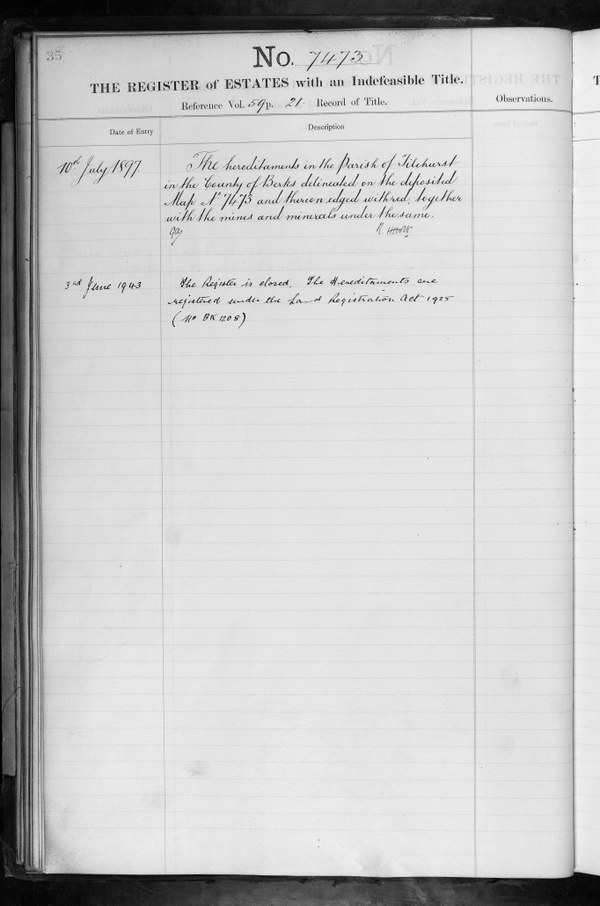 35
No. 7473
THE REGISTER of ESTATES with an Indefeasible Title.
Reference Vol. 59 p. 21 Record of Title.
Observations.
Date of Entry
Description
10th July 1897
The hereditaments in the Parish of Tilehurst
in the County of Berks delineated on the deposited
Map No 7473 and thereon edged with red, together
with the mines and minerals under the same.
3rd June 1943
The Register is closed. The Hereditaments are
registered under the Land Registration Act 1925
(No BK 1208)